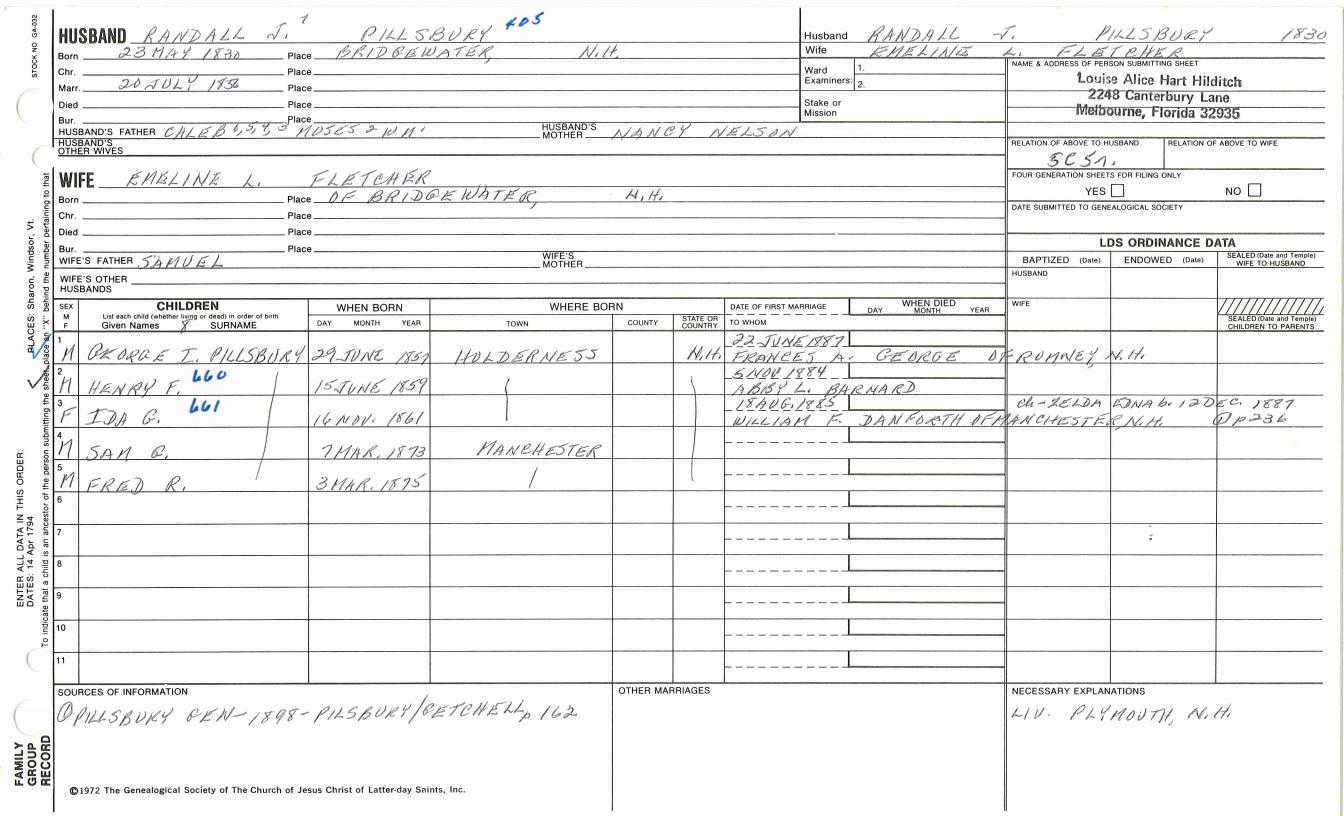 STOCK NO GA-032
HUSBAND RANDALL J. 7 PILLSBURY 405
Born 23 MAY 1830 Place BRIDGEWATER, N.H.
Chr. Place
Marr. 20 JULY 1856 Place
Died Place
Bur. Place
HUSBAND'S FATHER CALEB 6, 5, 4, 3 MOSES 2 WM. HUSBAND'S MOTHER NANCY NELSON
HUSBAND'S OTHER WIVES
Husband RANDALL J. PILLSBURY 1830
Wife EMELINE L. FLETCHER
Ward Examiners: 1.
2.
Stake or Mission
NAME & ADDRESS OF PERSON SUBMITTING SHEET
Louise Alice Hart Hilditch
2248 Canterbury Lane
Melbourne, Florida 32935
RELATION OF ABOVE TO HUSBAND RELATION OF ABOVE TO WIFE
5C5r.
FOUR GENERATION SHEETS FOR FILING ONLY
YES NO
DATE SUBMITTED TO GENEALOGICAL SOCIETY
WIFE EMELINE L. FLETCHER
Born Place OF BRIDGEWATER, N.H.
Chr. Place
Died Place
Bur. Place
WIFE'S FATHER SAMUEL WIFE'S MOTHER
WIFE'S OTHER HUSBANDS
LDS ORDINANCE DATA
BAPTIZED (Date) ENDOWED (Date) SEALED (Date and Temple) WIFE TO HUSBAND
HUSBAND
WIFE
SEALED (Date and Temple) CHILDREN TO PARENTS
SEX M F CHILDREN WHEN BORN WHERE BORN DATE OF FIRST MARRIAGE WHEN DIED
List each child (whether living or dead) in order of birth
Given Names 8 SURNAME DAY MONTH YEAR TOWN COUNTY STATE OR COUNTRY TO WHOM DAY MONTH YEAR
1 22 JUNE 1887
M GEORGE I. PILLSBURY 29 JUNE 1857 HOLDERNESS N.H. FRANCES A. GEORGE OF RUMNEY, N.H.
2 660 5 NOV 1884
M HENRY F. 15 JUNE 1859 ABBY L. BARNARD
3 661 18 AUG, 1885 ch-ZELDA EDNA b. 12 DEC. 1887
F IDA G. 16 NOV. 1861 WILLIAM F. DANFORTH OF MANCHESTER, N.H. ① p236
4
M SAM C. 7 MAR. 1873 MANCHESTER
5
M FRED R. 3 MAR. 1875
6
7
8
9
10
11
SOURCES OF INFORMATION
① PILLSBURY GEN-1898-PILSBURY/GETCHELL, p 162
OTHER MARRIAGES
NECESSARY EXPLANATIONS
LIV. PLYMOUTH, N.H.
©1972 The Genealogical Society of The Church of Jesus Christ of Latter-day Saints, Inc.
FAMILY
GROUP
RECORD
ENTER ALL DATA IN THIS ORDER:
DATES: 14 Apr 1794
PLACES: Sharon, Windsor, Vt.
To indicate that a child is an ancestor of the person submitting the sheet, place an "X" behind the number pertaining to that